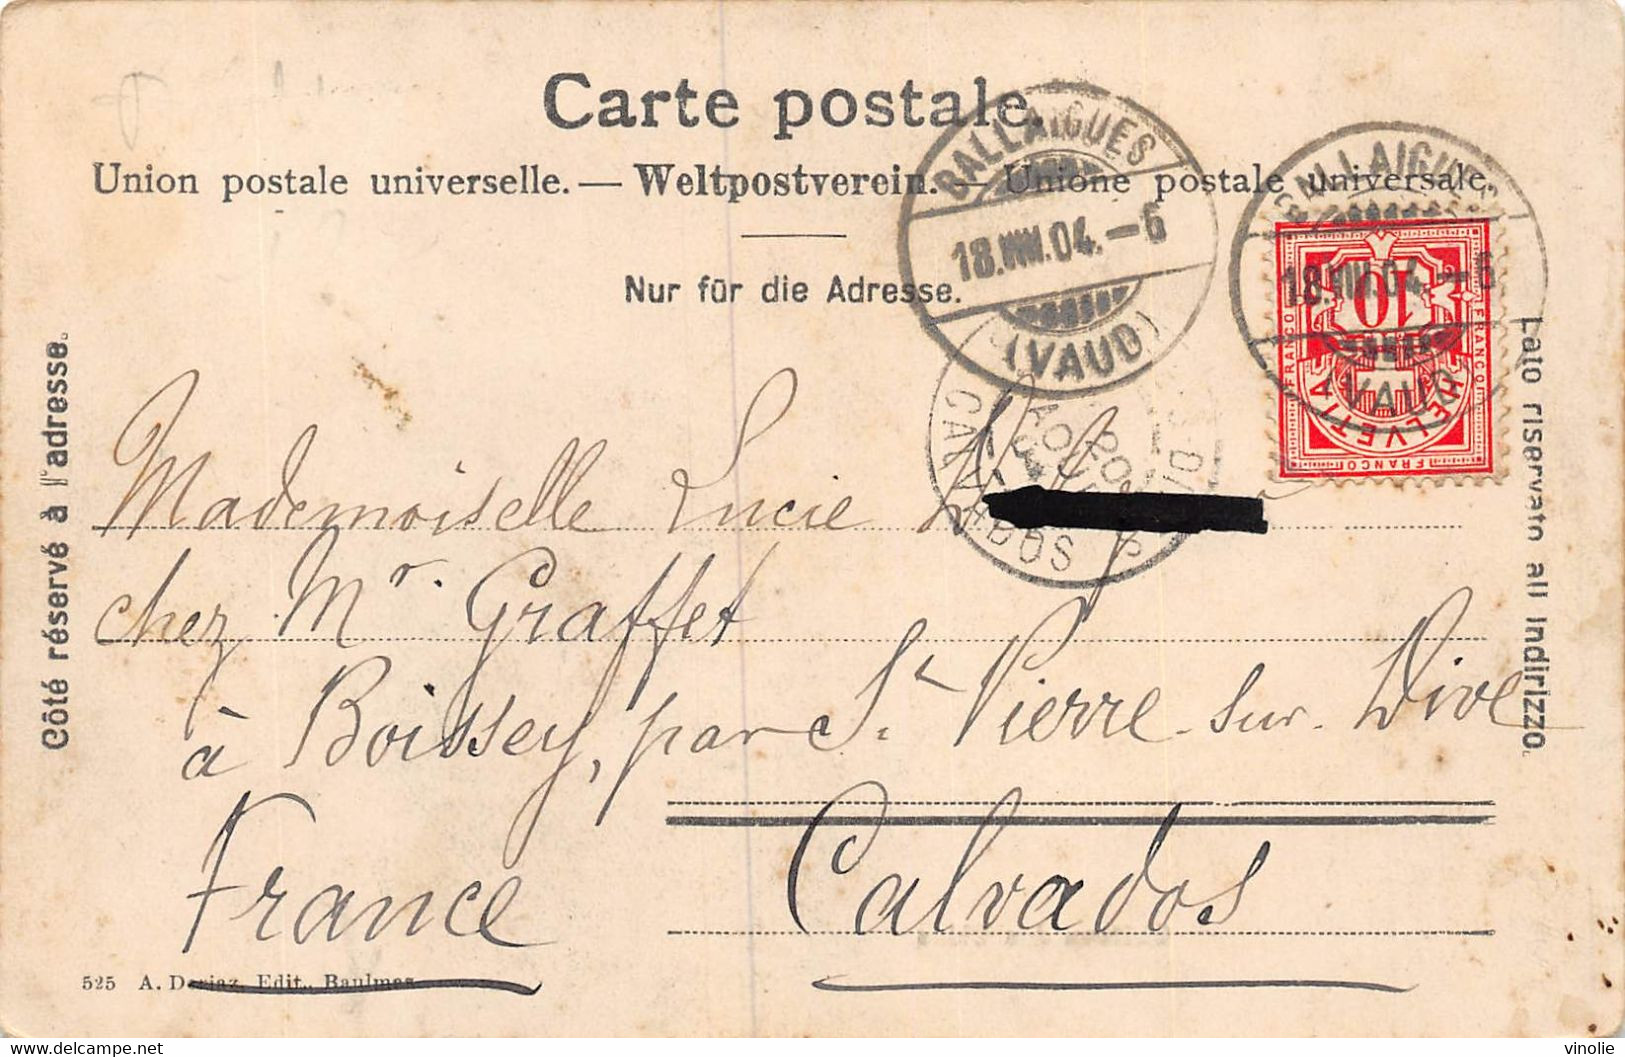 Carte postale.
Union postale universelle. — Weltpostverein. — Unione postale universale.
Nur für die Adresse.
Côté réservé à l'adresse.
Lato riservato all indirizzo.
BALLAIGUES
18.VIII.04.–6
(VAUD)
BALLAIGUES
18.VIII.04.–6
(VAUD)
FRANCO
10
HELVETIA
FRANCO
FRANCO
20
AOUT
04
CALVADOS
Mademoiselle Lucie
chez Mr. Graffet
à Boissey, par St Pierre-sur-Dive
France Calvados
525 A. Deriaz, Edit., Baulmes
vinolie